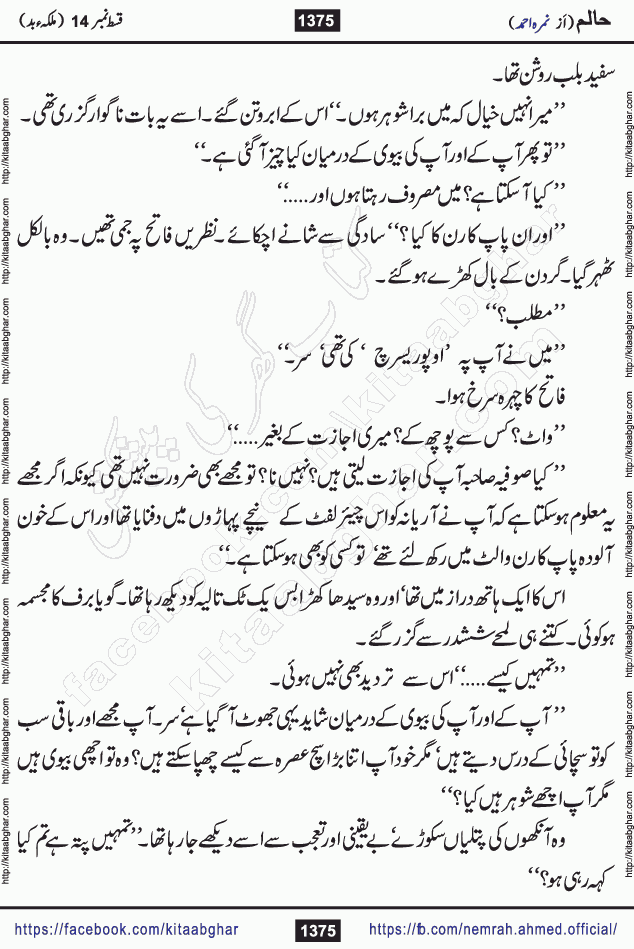 حالم (از نمرہ احمد)
1375
قسط نمبر 14 (ملکہ ء بد)
سفید بلب روشن تھا۔
’’میرا نہیں خیال کہ میں برا شوہر ہوں۔‘‘ اس کے ابرو تن گئے۔ اسے یہ بات ناگوار گزری تھی۔
’’تو پھر آپ کے اور آپ کی بیوی کے درمیان کیا چیز آ گئی ہے۔‘‘
’’کیا آ سکتا ہے؟ میں مصروف رہتا ہوں اور.....‘‘
’’اور ان پاپ کارن کا کیا؟‘‘ سادگی سے شانے اچکائے۔ نظریں فاتح پہ جمی تھیں۔ وہ بالکل
ٹھہر گیا۔ گردن کے بال کھڑے ہو گئے۔
’’مطلب؟‘‘
’’میں نے آپ پہ ’اوپو ریسرچ‘ کی تھی‘ سر۔‘‘
فاتح کا چہرہ سرخ ہوا۔
’’واٹ؟ کس سے پوچھ کے؟ میری اجازت کے بغیر.....‘‘
’’کیا صوفیہ صاحبہ آپ کی اجازت لیتی ہیں؟ نہیں نا؟ تو مجھے بھی ضرورت نہیں تھی کیونکہ اگر مجھے
یہ معلوم ہو سکتا ہے کہ آپ نے آریانہ کو اس چیئر لفٹ کے نیچے پہاڑوں میں دفنایا تھا اور اس کے خون
آلودہ پاپ کارن والٹ میں رکھ لئے تھے‘ تو کسی کو بھی ہو سکتا ہے۔‘‘
اس کا ایک ہاتھ دراز میں تھا‘ اور وہ سیدھا کھڑا بس یک ٹک تالیہ کو دیکھ رہا تھا۔ گویا برف کا مجسمہ
ہو کوئی۔ کتنے ہی لمحے ششدر سے گزر گئے۔
’’تمہیں کیسے.....‘‘ اس سے تردید بھی نہیں ہوئی۔
’’آپ کے اور آپ کی بیوی کے درمیان شاید یہی جھوٹ آ گیا ہے‘ سر۔ آپ مجھے اور باقی سب
کو تو سچائی کے درس دیتے ہیں‘ مگر خود آپ اتنا بڑا سچ عصرہ سے کیسے چھپا سکتے ہیں؟ وہ تو اچھی بیوی ہیں
مگر آپ اچھے شوہر ہیں کیا؟‘‘
وہ آنکھوں کی پتلیاں سکوڑے‘ بے یقینی اور تعجب سے اسے دیکھے جا رہا تھا۔ ’’تمہیں پتہ ہے تم کیا
کہہ رہی ہو؟‘‘
http://kitaabghar.com http://kitaabghar.com http://kitaabghar.com http://kitaabghar.com http://kitaabghar.com http://kitaabghar.com http://kitaabghar.com http://kitaabghar.com
http://kitaabghar.com http://kitaabghar.com http://kitaabghar.com http://kitaabghar.com http://kitaabghar.com http://kitaabghar.com http://kitaabghar.com http://kitaabghar.com
کتاب گھر کی پیشکش
facebook.com/kitaabghar
kitaabghar.com
https://facebook.com/kitaabghar
1375
https://fb.com/nemrah.ahmed.official/